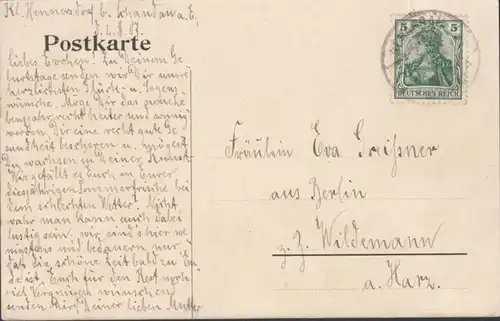 Kl. Hennersdorf b. Schandau a. E,
2. 8. 07.
Postkarte
liebes Evchen! Zu Deinem Ge-
burtstage senden wir Dir unsre
herzlichsten Glück- u. Segens-
wünsche. Möge Dir das neue
Lebensjahr recht heiter und sonnig
werden Dir eine recht gute Ge
sundheit bescheren u. mögest
Du wachsen zu Deiner
Wie gefällt es Euch in Eurer
diesjährigen Sommerfrische bei
dem schlechten Wetter? Nicht
wahr man kann auch dabei
lustig sein. wir sind's hier we
nigstens und bedauern nur,
daß die schöne Zeit bald zu En
de ist. Euch für den Rest noch
viel Vergnügen wünschend
senden Dir Deiner lieben Mutter
5 5
DEUTSCHES REICH
Fräulein Eva
aus Berlin
z. Z. Wildemann
a. Harz.